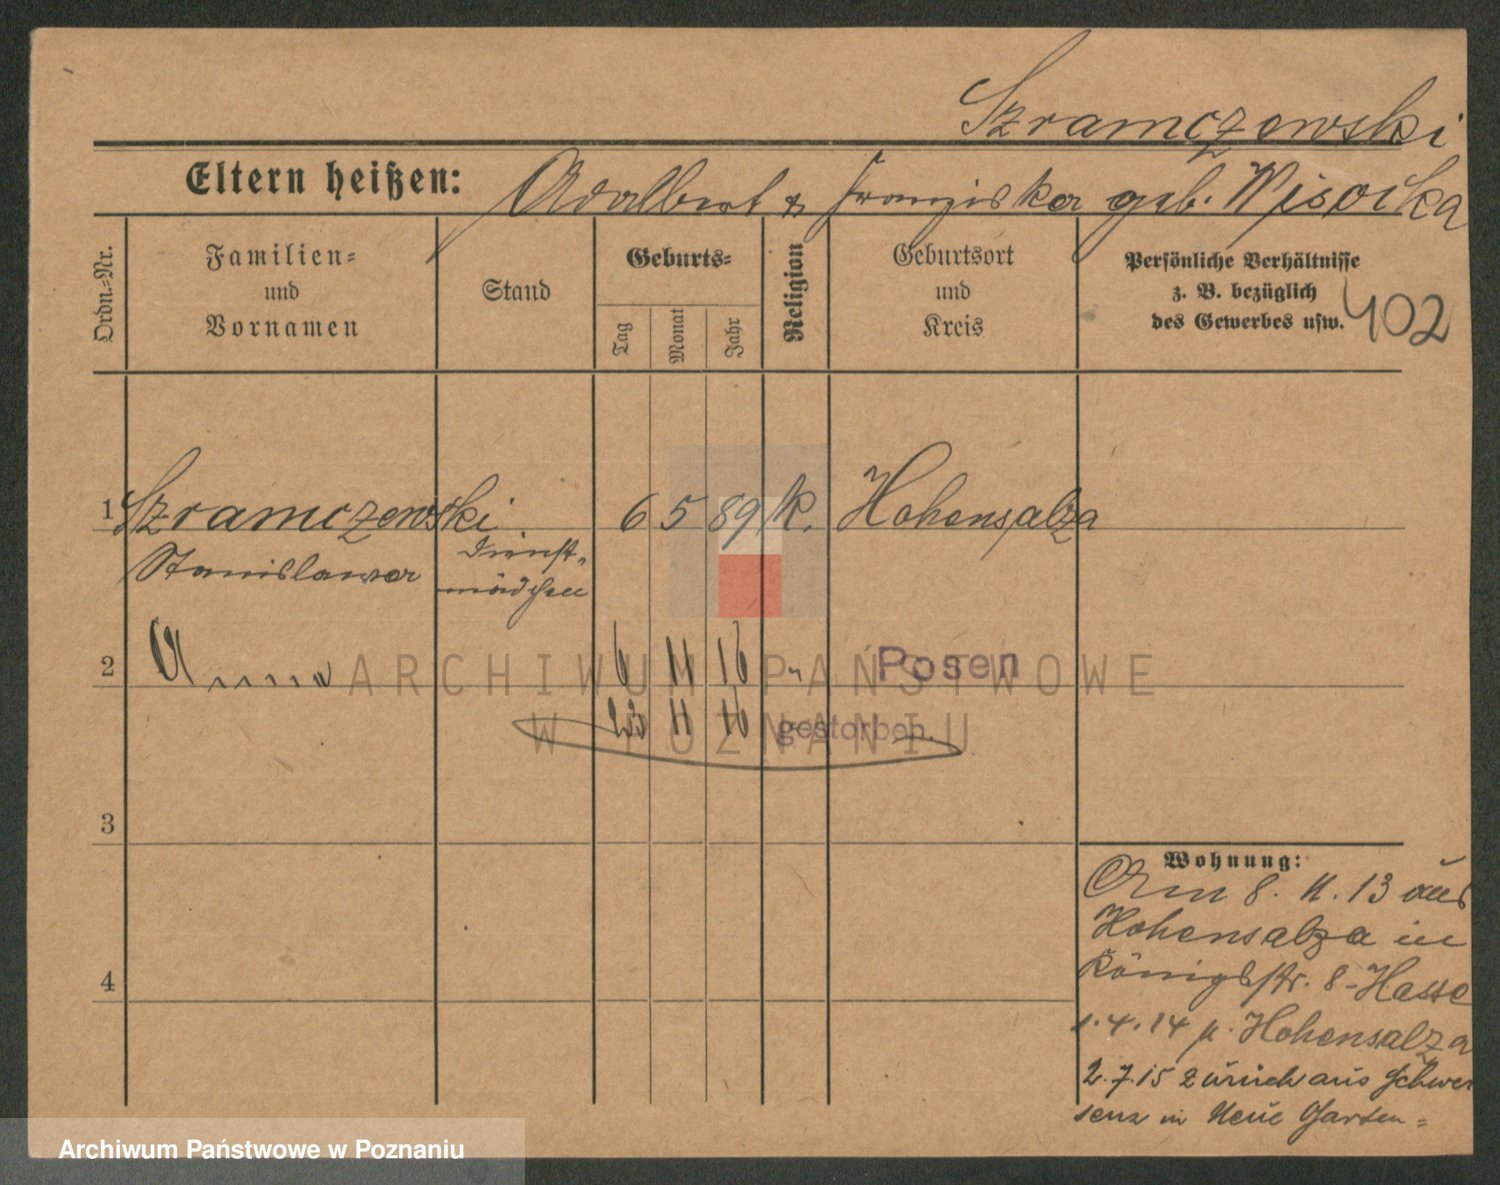 Szramczewski
Eltern heißen: Adalbert & Franziska geb. Wisocka
Ordn.-Nr.
Familien-
und
Vornamen
Stand
Geburts-
Tag
Monat
Jahr
Religion
Geburtsort
und
Kreis
Persönliche Verhältnisse
z. B. bezüglich
des Gewerbes usw.
402
1 Szramczewski 6 5 89 k. Hohensalza
Stanislawa Dienst-
mädchen
2 Anna 6 11 16 " Posen
11 16 gestorben.
3
4
Wohnung:
Am 8. 11. 13 aus
Hohensalza in
Königstr. 8 - Hasse
1.4.14 n. Hohensalza
2.7.15 zurück aus Schwer
senz in Neue Garten-
ARCHIWUM PAŃSTWOWE
W POZNANIU
Archiwum Państwowe w Poznaniu